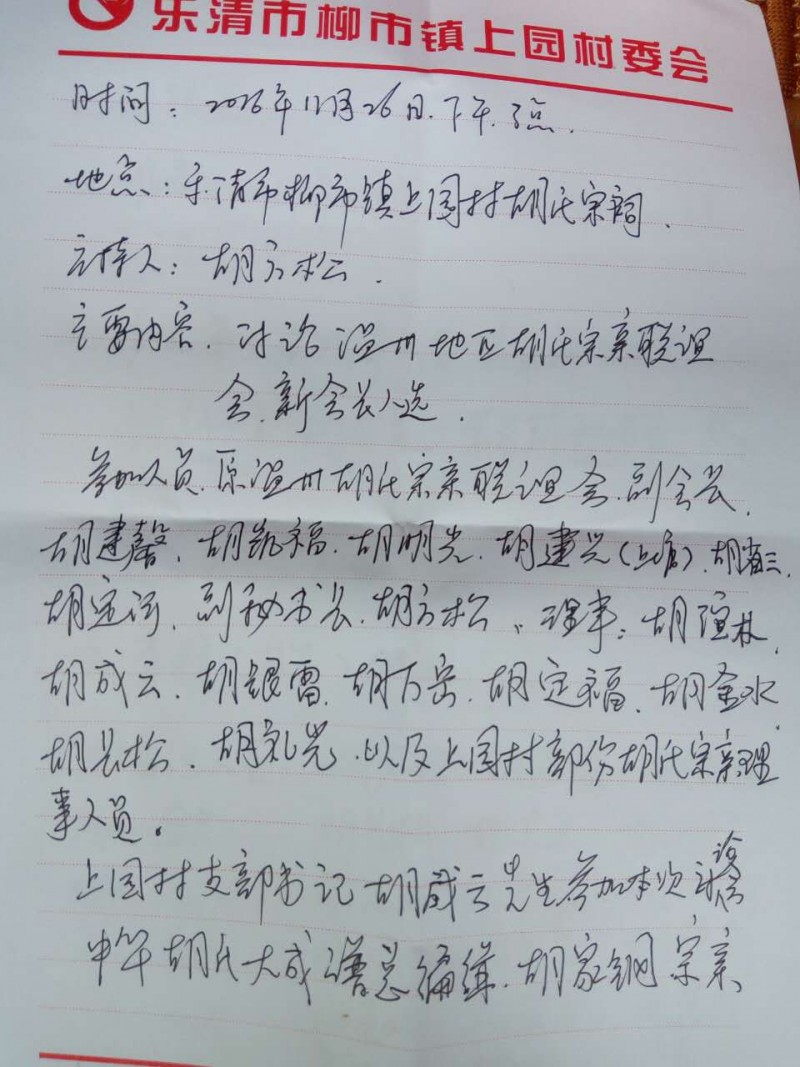 乐清市柳市镇上园村委会
时间：2016年11月26日.下午.3点.
地点：乐清市柳市镇上园村胡氏宗祠.
主持人：胡方松.
主要内容.讨论温州地区胡氏宗亲联谊
会.新会长人选.
参加人员.原温州胡氏宗亲联谊会.副会长.
胡建馨.胡凯福.胡明光.胡建兴(上岙).胡省三.
胡定河.副秘书长.胡方松、理事：胡林.
胡成云.胡银雷.胡万岳.胡定福.胡金水.
胡松.胡礼光.以及上园村部份胡氏宗亲理
事人员。
上园村支部书记胡成云先生参加本次讨论
中午胡氏大成谱总编辑.胡家钢宗亲